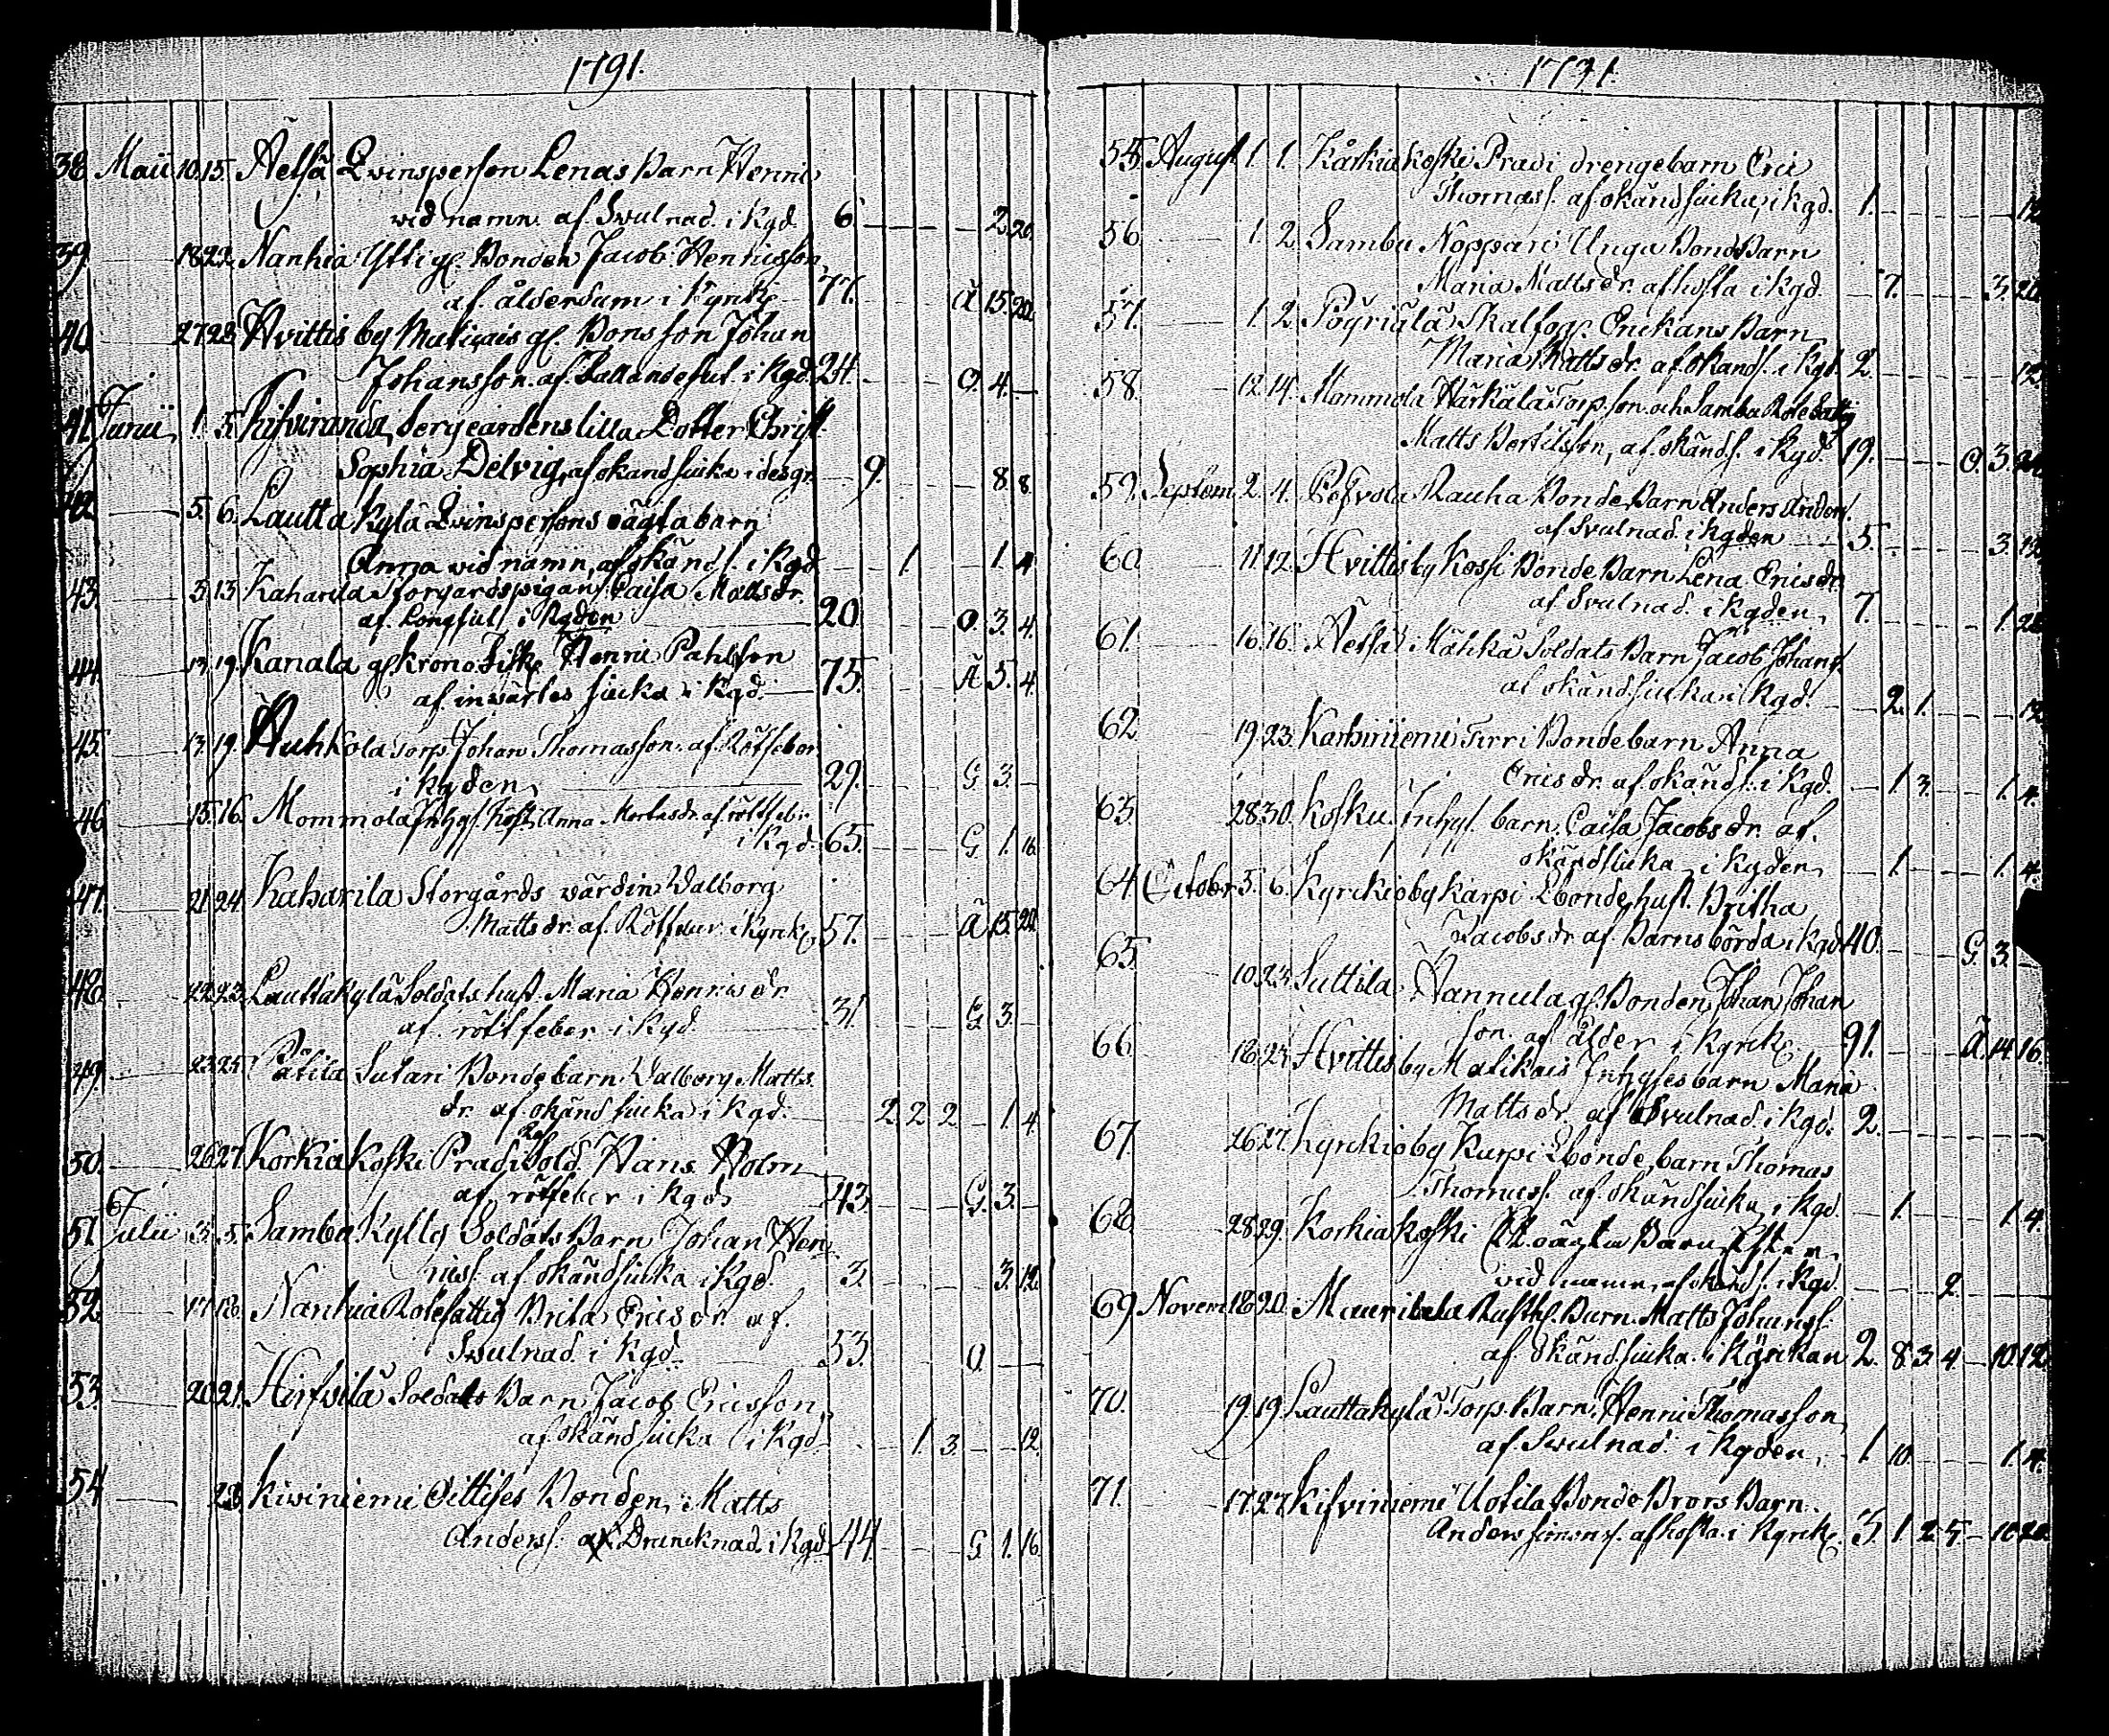 1791.
38 Maii 10. 15. Äetsä Qvinsperson Lenas Barn Henric
vid namn. af. Swulnad. i Kgd. 6. 2. 20.
39. 18. 22. Nanhia gl. Bonden Jacob Henricsson,
af. ålderdum i Kyrck. 77. Ä 15. 20.
40. 27. 28. Hvittis by gl. Bons son Johan
Johansson. af. i Kgd. 24. O. 4.
41. Junii 1. 5. lilla Dotter Christ.
Sophia Delvig, af okänd siuka i 9. 8. 8.
42. 5. 6. Lauttakylä Qvinspersons oägta barn
Anna vid namn, af okänd s. i Kgd 1. 1. 4
43. 5. 13. Kaharila Storgårds pigan Caisa Matts dr.
af. Longsiu i Kgden 20 O. 3. 4.
44. 13. 19. Kanala gl. Henric Pahlson
af. invärtes siucka i Kgd. 75. Ä 5. 4.
45. 13. 19. Huhkola Torp. Johan Thomasson. af. Rötfeber
i Kgden, 29. G 3.
46. 15. 16. Mommola Inhys. Anna dr. af. rötfeb.
i Kgd. 65. G. 1. 16.
47. 21. 24. Kaharila Storgårds värdin Walborg
Matts dr. af. Rötfeber i Kyrck. 57. Ä 15. 20.
48. 22. 23. Lauttakylä Soldats hust. Maria Henrics dr
af. rötfeber i Kgd. 31. G. 3.
49. 23. 25. Bondebarn Walborg Matts
dr. af. okänd siucka i Kgd. 2 2 2 1. 4.
50. 26. 27. Korkiakoski Pradi Sold. Hans Holm
af. rötfeber i Kgd. 43. G. 3.
51. Julii 3. 5. Sambu Soldats Barn Johan Hen
rics s. af okänd siucka i Kgd. 3. 3. 12.
52. 17. 18. Nanhia Rotefattig Brita Erics dr. af.
Swulnad i Kgd. 53. O.
53. 20. 21. Hirfvilä Soldats Barn Jacob Ericsson,
af. okänd siucka i Kgd. 1. 3 12.
54 28. Kiviniemi Bonden, Matts
Anders s. af Druncknad. i Kgd 44. G. 1. 16.
55. August 1. 1. Korkiakoski Pradi drengebarn Eric
Thomas s. af okänd siucka, i kgd. 1. 12
56. 1. 2. Sambu Noppari Unga Bonde Barn
Maria Matts dr. af hosta i Kgd. 7. 3. 20.
57. 1. 2. Pöyriälä Barn
Maria Matts dr. af. okänd s. i Kgd. 2. 12
58. 12. 14. Mommola Härkälä Torp. son och Sambu Rote fattig
Matts Bertilsson, af. okänd s. i Kgd. 19. O. 3.
59. Septem 2. 4. Rauha Bonde Barn Anders Anders s.
af Svulnad. i Kgden 5. 3. 12
60 11. 12. Hvittis by Kossi Bonde Barn Lena Erics dr.
af. Svulnad. i Kgden, 7. 1. 28
61. 16. 16. Äetsä Mähkä Soldats Barn Jacob Johans s.
af okänd siucka i Kgd. 2. 1. 12
62 19. 23. Karhiniemi Tirri Bondebarn Anna
Erics dr. af okänd s. i Kgd. 1. 3. 1. 4.
63. 28. 30. Kosku. Inhys. barn. Caisa Jacobs dr. af.
okänd siucka i Kgden, 1. 1. 4.
64. Octobr 5. 6. Kyrckioby Karpi Bonde hust. Britha
Jacobs dr af. Barnsbörda i Kgd 40. G 3.
65. 10. 23. Suttila gl. Bonden Johan Johan
son. af ålder i Kyrck. 91. Ä. 14. 16.
66. 18. 23. Hvittis by Inhyses barn Maria
Matts dr. af Svulnad. i Kgd. 2.
67. 26. 27. Kyrckioby Karpi Bonde, barn Thomas
Thomas s. af okänd siucka, i Kgd. 1. 1. 4.
68. 28. 29. Korkiakoski oägta Barn
vid namn, af okänd s. i Kgd. 2.
69 Novem 18. 20. Maurila Rusth. Barn. Matts Johans s.
af. okänd siucka. i Kÿrckan 2. 8. 3. 4. 10. 12
70. 19. 19. Lauttakylä Torp. Barn. Henric Thomasson,
af. Swulnad. i Kgden, 1. 10. 1. 4.
71. 17. 27. Kifviniemi Uotila Bonde Brors Barn.
Anders Simons s. af hosta. i Kyrck. 3. 1. 2. 5. 10. 20.